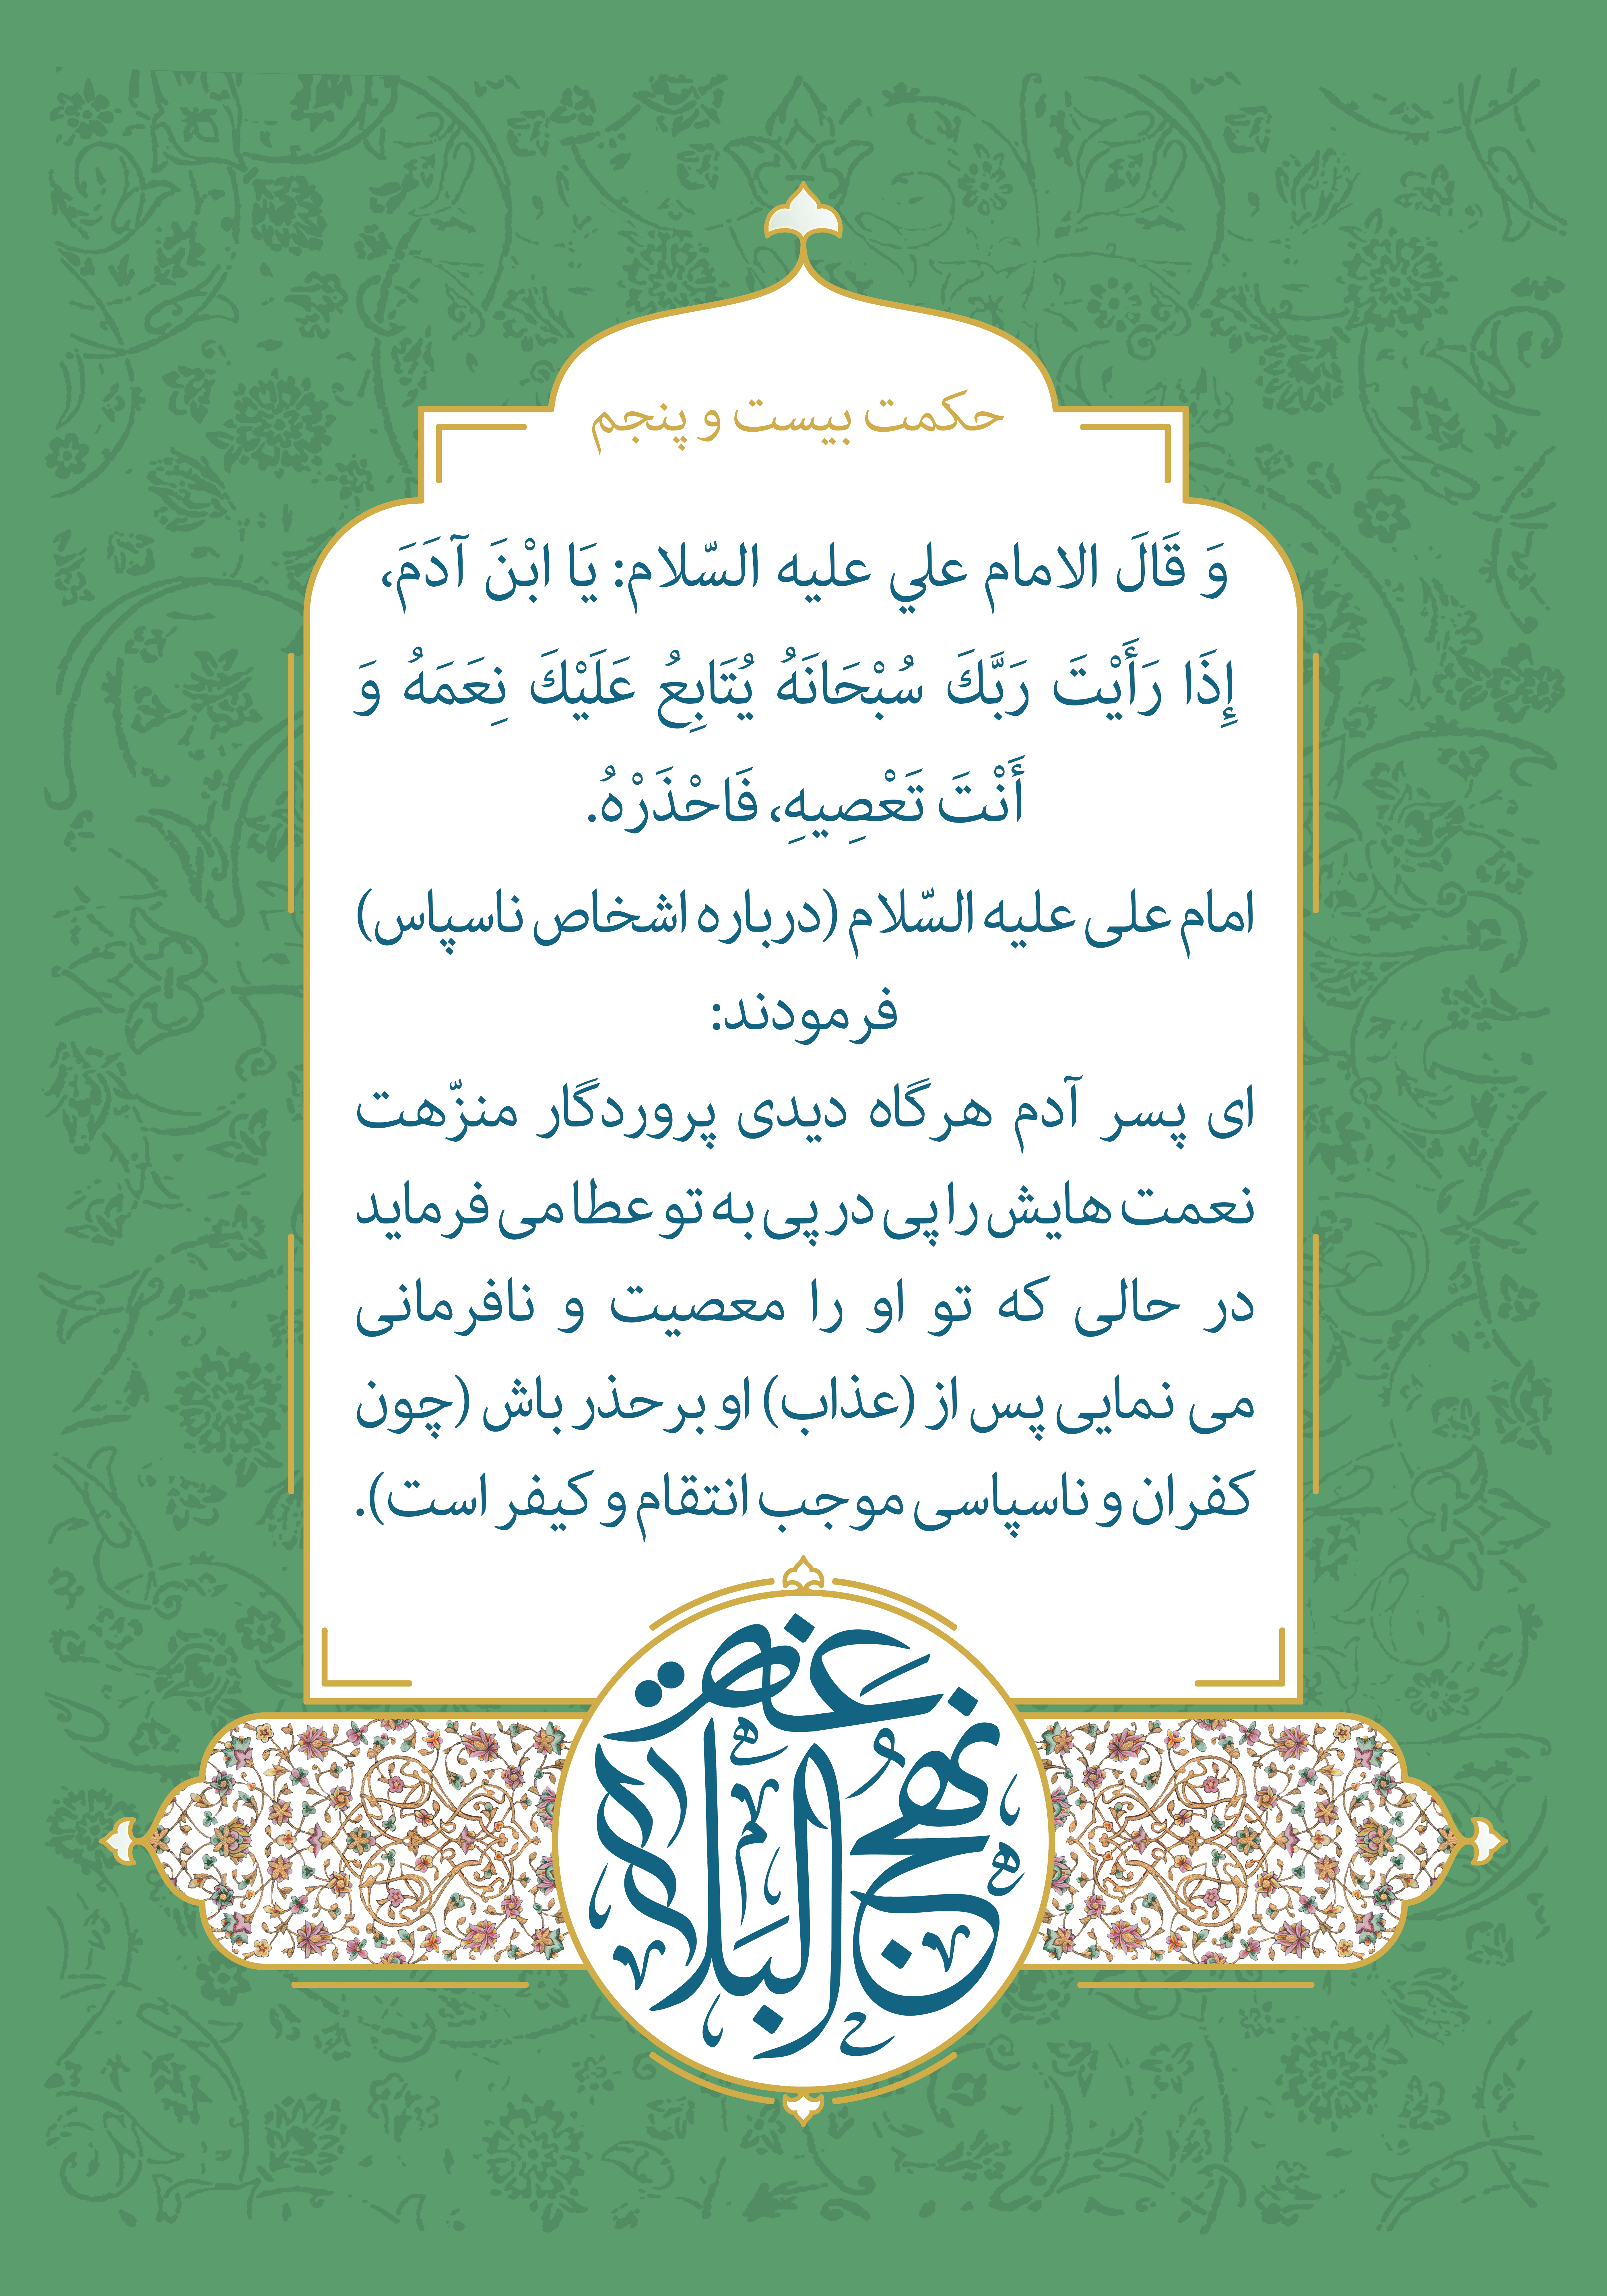 حکمت بیست و پنجم
وَ قَالَ الامام علي علیه السّلام: يَا ابْنَ آدَمَ،
إِذَا رَأَيْتَ رَبَّكَ سُبْحَانَهُ يُتَابِعُ عَلَيْكَ نِعَمَهُ وَ
أَنْتَ تَعْصِيهِ، فَاحْذَرْهُ.
امام علی علیه السّلام (درباره اشخاص ناسپاس)
فرمودند:
ای پسر آدم هرگاه دیدی پروردگار منزّهت
نعمت هایش را پی در پی به تو عطا می فرماید
در حالی که تو او را معصیت و نافرمانی
می نمایی پس از (عذاب) او برحذر باش (چون
کفران و ناسپاسی موجب انتقام و کیفر است).
نهج البلاغة